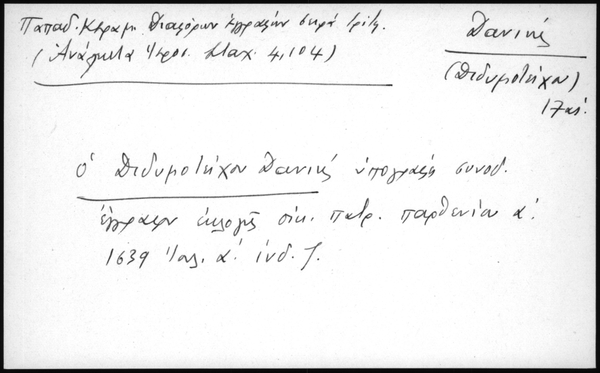 Παπαδ. Κεραμ. Διαφόρων ἐγγραφῶν σειρά τρίτη.
(Ἀνάλεκτα Ἱεροσ. Σταχ. 4, 104)
Δανιήλ
(Διδυμοτείχου)
17 αἰ.
Ὁ Διδυμοτείχου Δανιήλ ὑπογράφει συνοδ.
ἔγγραφον ἐκλογῆς οἰκ. πατρ. Παρθενίου α΄.
1639 Ἰουλ. α΄. ἰνδ. ζ.